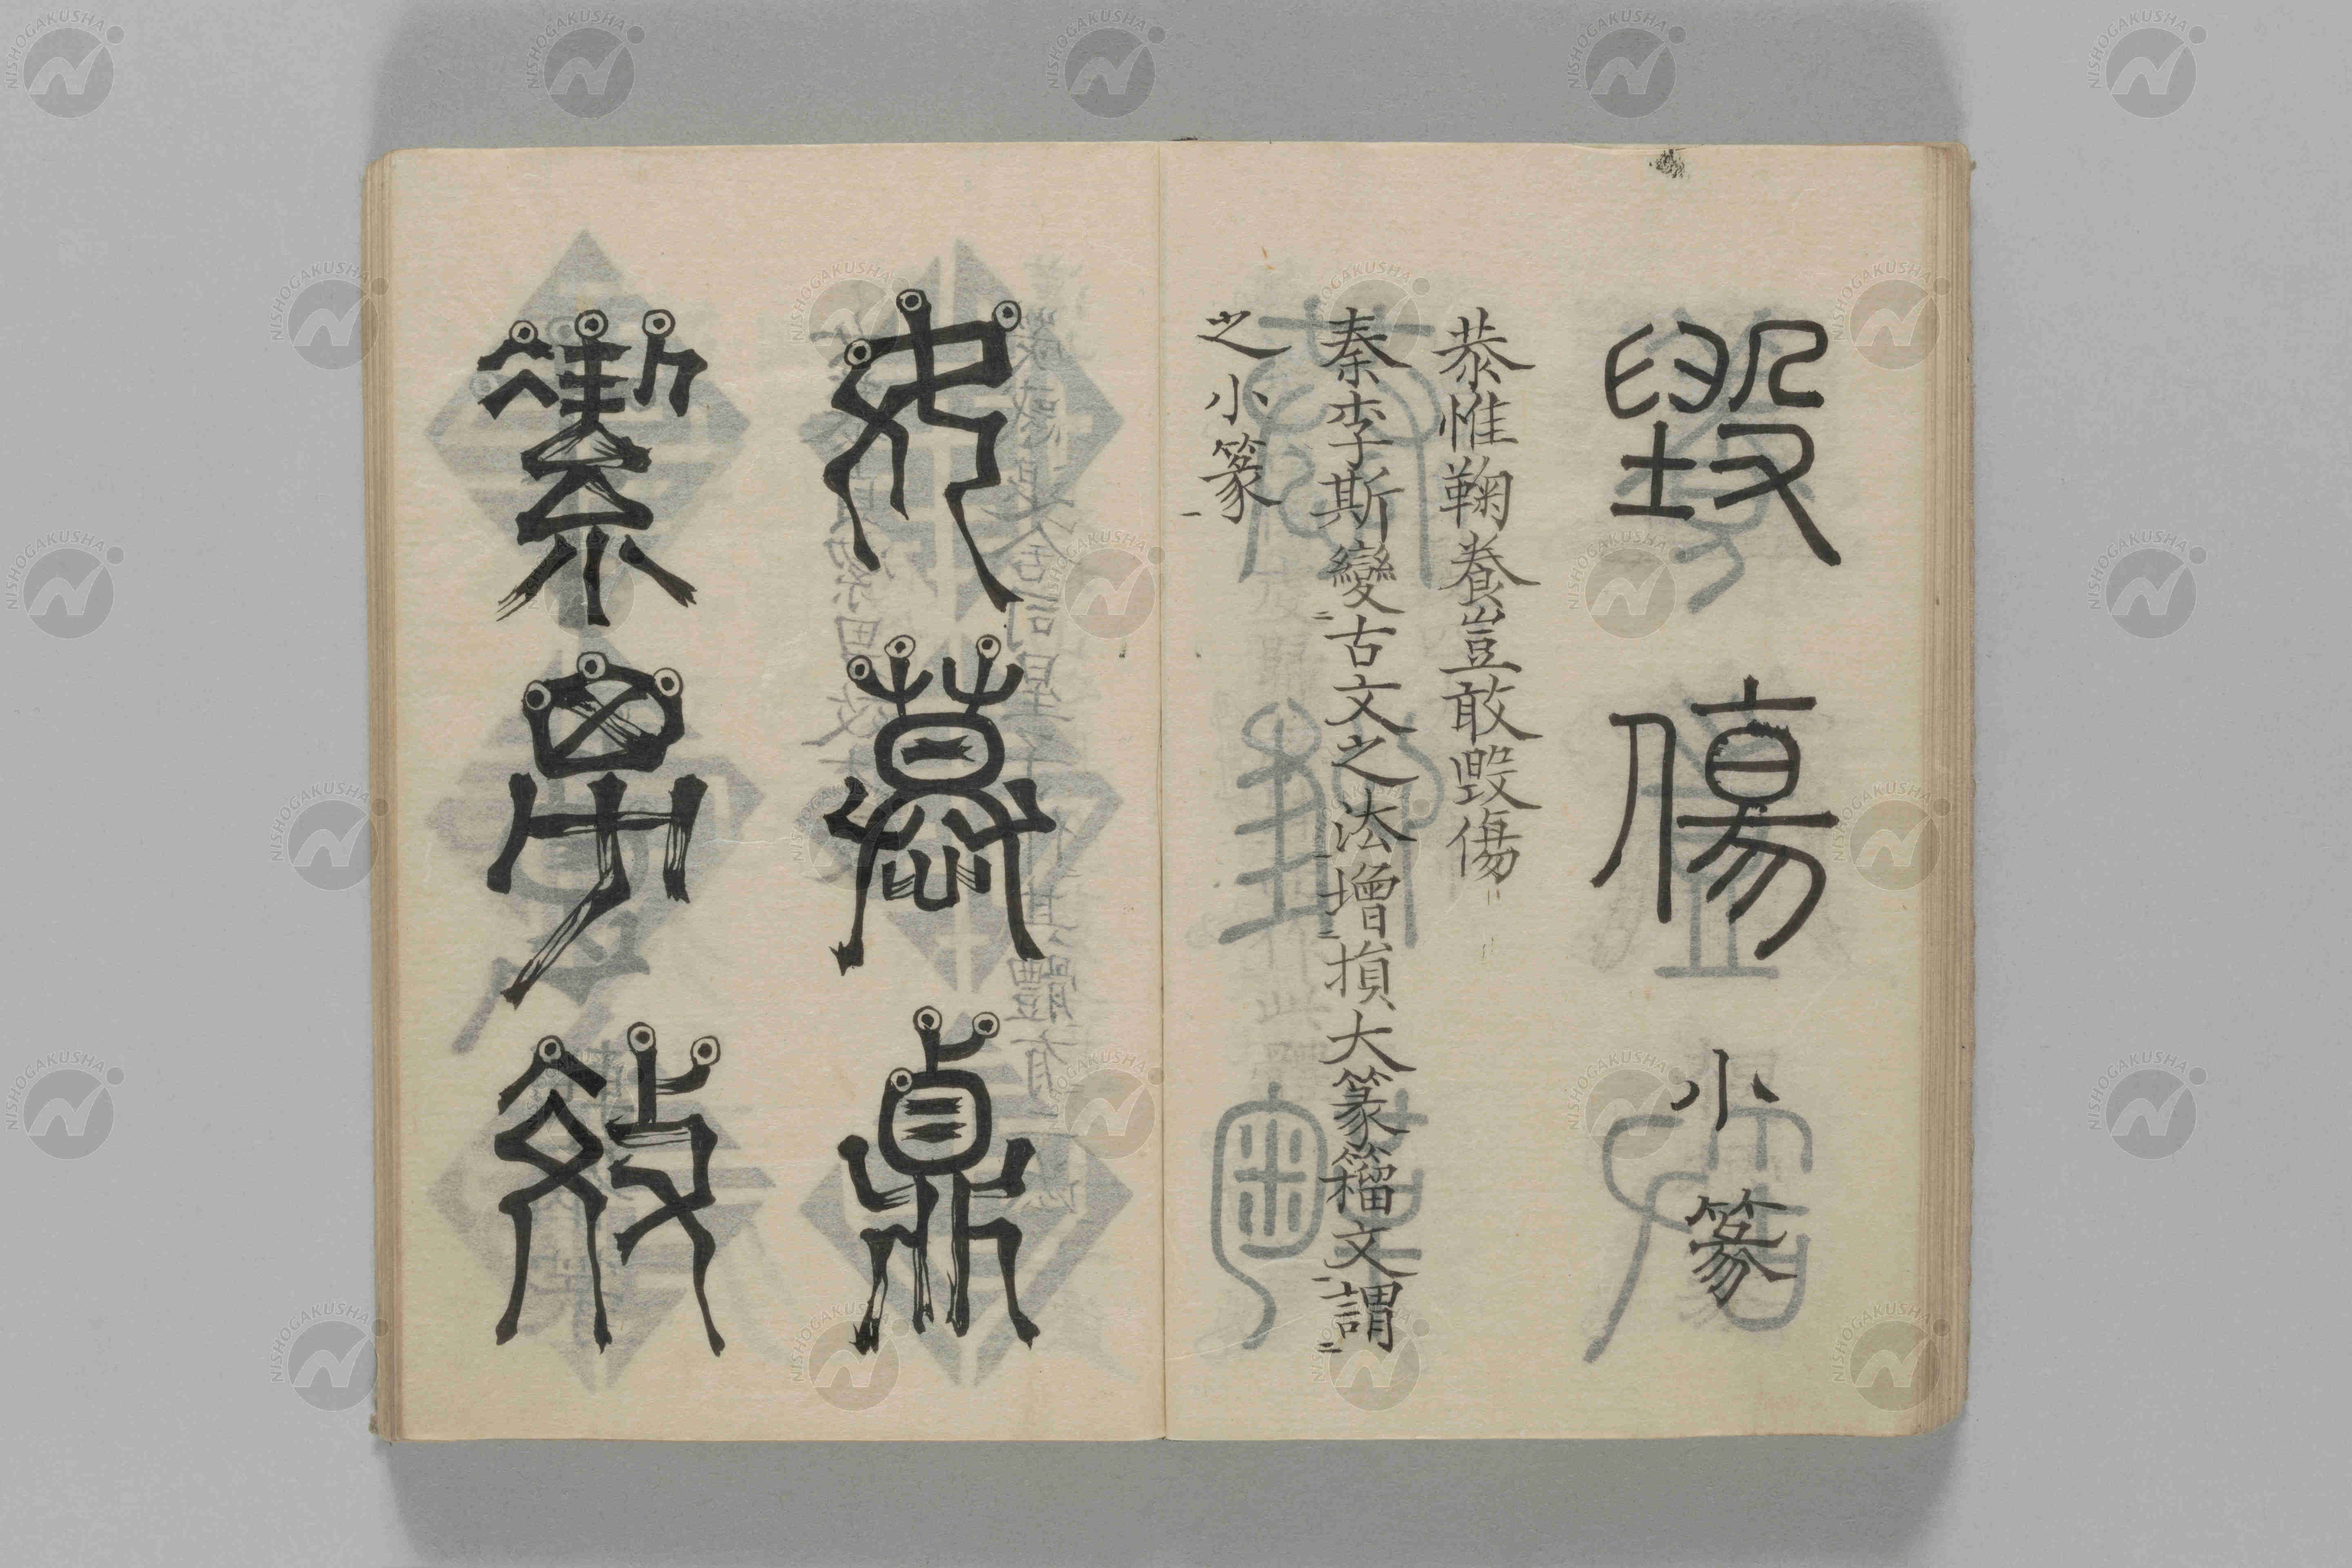 毀傷小篆
恭惟鞠養豈敢毀傷
秦李斯變古文之法增損大篆籀文謂
之小篆
女慕貞
絜男效